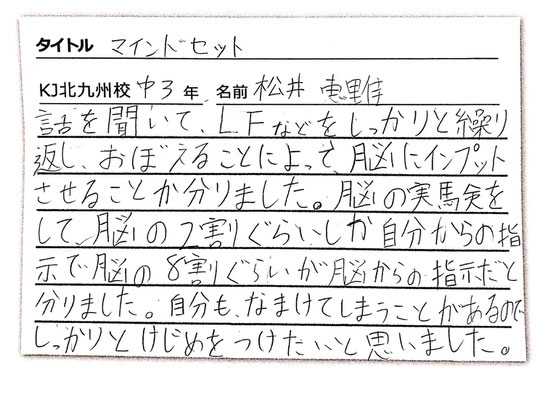 タイトル マインドセット
KJ北九州校 中3年 名前 松井 恵里佳
話を聞いて、LFなどをしっかりと繰り
返し、おぼえることによって、脳にインプット
させることが分りました。脳の実験を
して、脳の2割ぐらいしか自分からの指
示で脳の8割ぐらいが脳からの指示だと
分りました。自分も、なまけてしまうことがあるので
しっかりとけじめをつけたいと思いました。